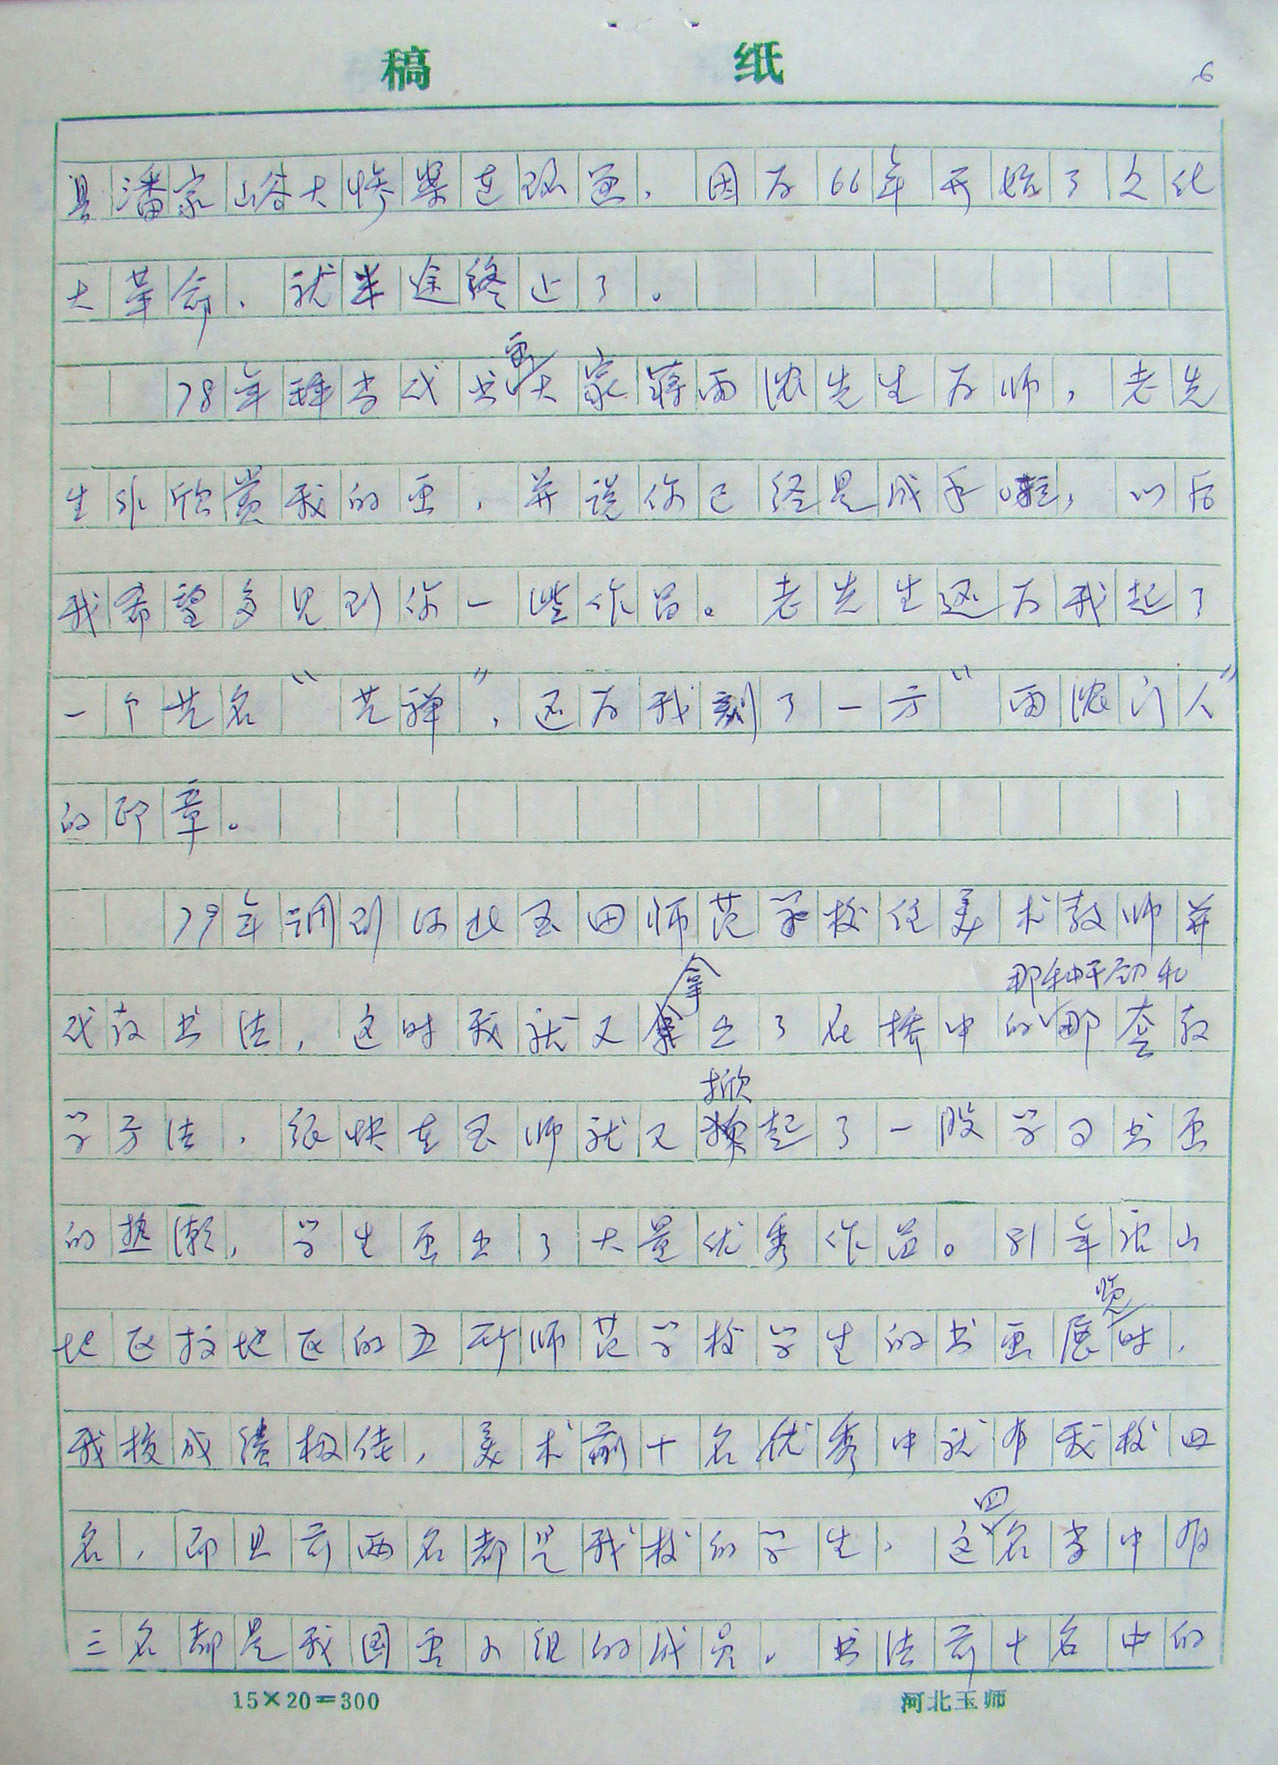 稿 纸
6
县潘家峪大惨案连环画，因为66年开始了文化
大革命，就半途终止了。
78年拜当代书画大家蒋雨浓先生为师，老先
生非欣赏我的画，并说你已经是成手啦，以后
我希望多见到你一些作品。老先生还为我起了
一个艺名“艺禅”，还为我刻了一方“雨浓门人”
的印章。
79年调到河北玉田师范学校任美术教师并
代教书法，这时我就又拿出了在桥中的那种干劲和那套教
学方法，很快在玉师就又掀起了一股学习书画
的热潮，学生画出了大量优秀作品。81年唐山
地区搞地区的五所师范学校学生的书画展览时，
我校成绩极佳，美术前十名优秀中就有我校四
名，即且前两名都是我校的学生，这四名学中有
三名都是我国画小组的成员。书法前十名中的
15×20=300 河北玉师